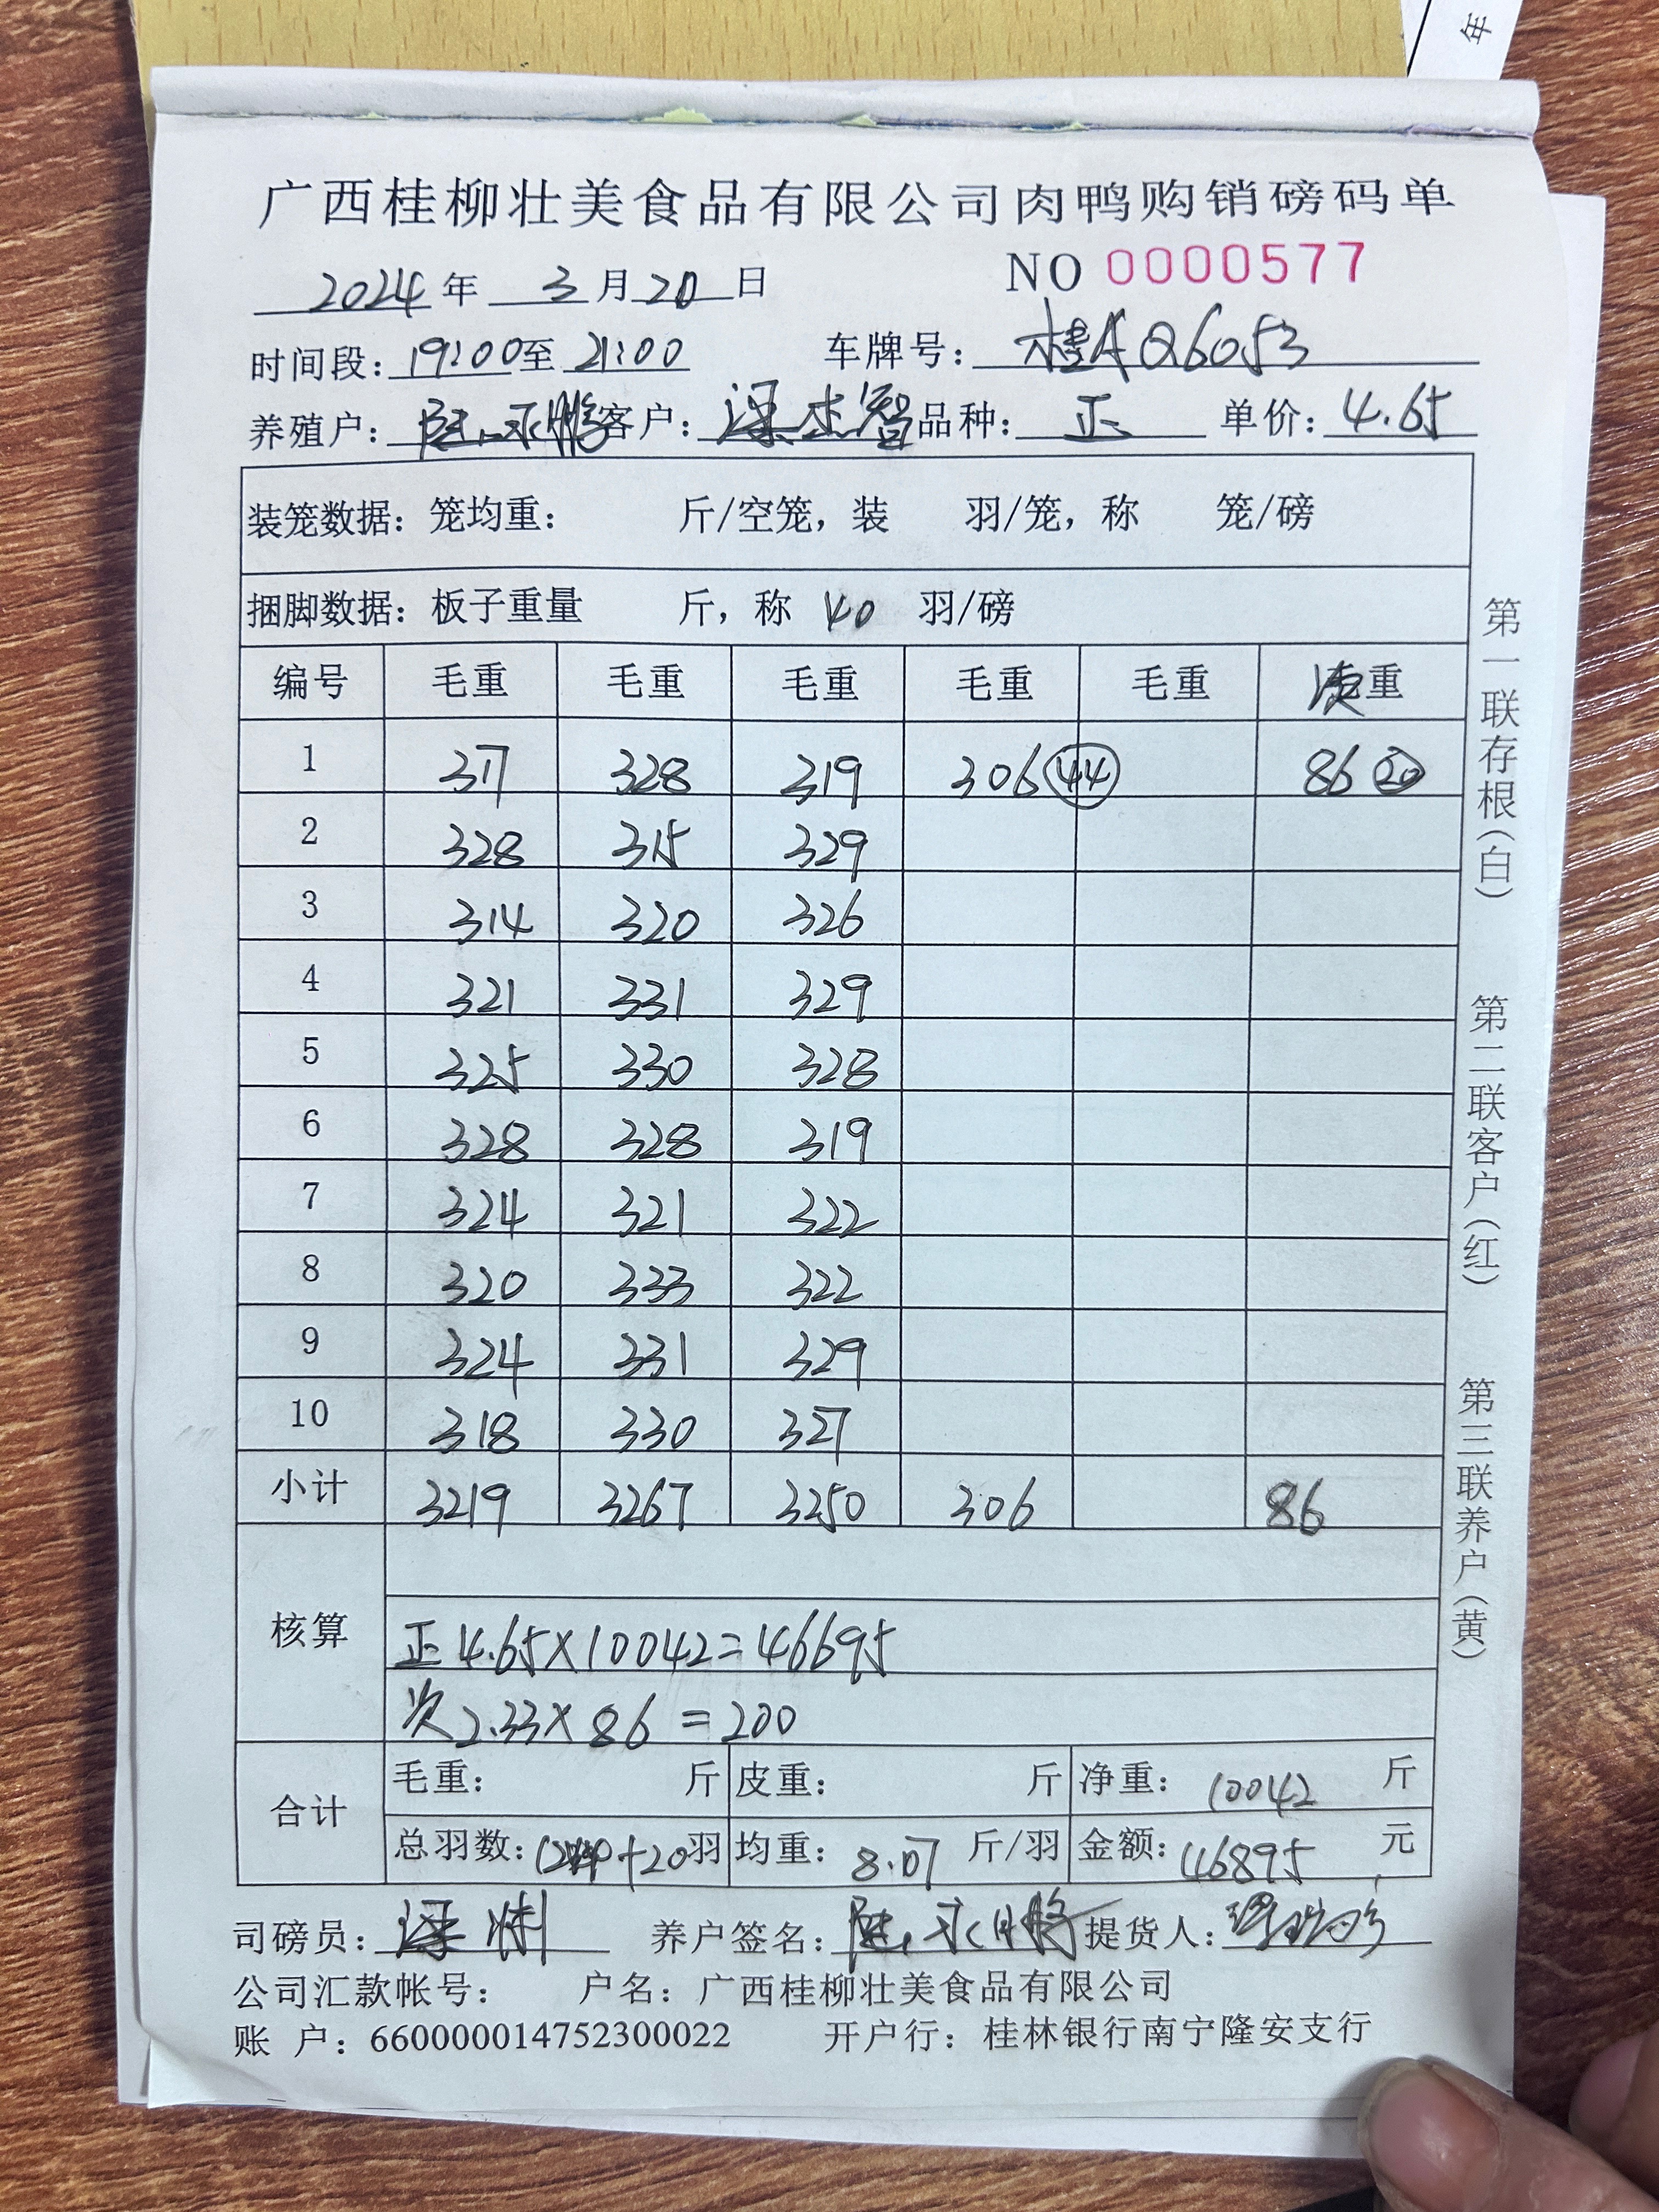 年
广西桂柳壮美食品有限公司肉鸭购销磅码单
2024年 3月20日 NO 0000577
时间段：19:00至21:00 车牌号：桂AQ6053
养殖户：陆永鹏 客户：梁杰智 品种：正 单价：4.65
装笼数据：笼均重： 斤/空笼，装 羽/笼，称 笼/磅
捆脚数据：板子重量 斤，称 40 羽/磅
编号 毛重 毛重 毛重 毛重 毛重 重
1 317 328 319 306 44 86 20
2 328 315 329
3 314 320 326
4 321 331 329
5 325 330 328
6 328 328 319
7 324 321 322
8 320 333 322
9 324 331 329
10 318 330 327
小计 3219 3267 3250 306 86
核算
正 4.65×10042=46695
次 2.33×86=200
合计 毛重： 斤 皮重： 斤 净重：10042 斤
总羽数： +20羽 均重：8.07 斤/羽 金额：46895 元
司磅员：梁 养户签名：陆永鹏 提货人：
公司汇款帐号： 户名：广西桂柳壮美食品有限公司
账 户：660000014752300022 开户行：桂林银行南宁隆安支行
第一联存根（白）
第二联客户（红）
第三联养户（黄）